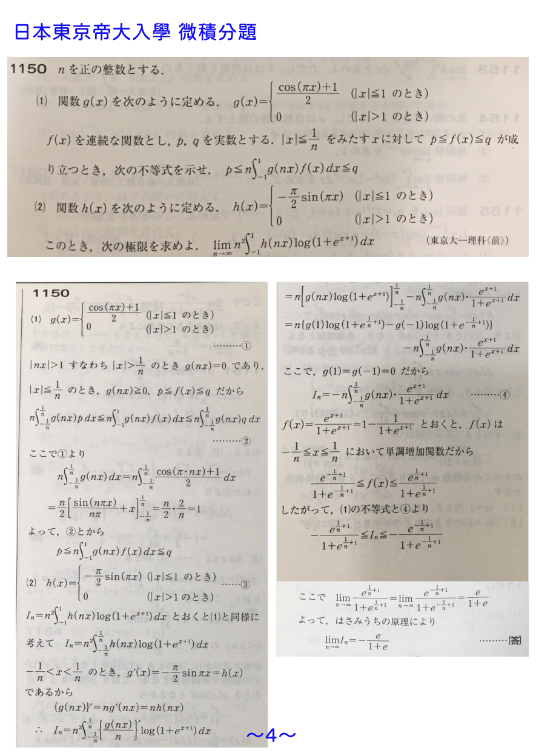 日本東京帝大入學 微積分題
1150 nを正の整数とする.
(1) 関数g(x)を次のように定める. g(x)={ (cos(πx)+1)/2 (|x|≦1 のとき)
0 (|x|>1 のとき)
f(x)を連続な関数とし, p, qを実数とする. |x|≦1/n をみたすxに対して p≦f(x)≦q が成
り立つとき, 次の不等式を示せ. p≦n∫_{-1}^{1} g(nx)f(x)dx≦q
(2) 関数h(x)を次のように定める. h(x)={ -π/2 sin(πx) (|x|≦1 のとき)
0 (|x|>1 のとき)
このとき, 次の極限を求めよ. lim_{n→∞} n²∫_{-1}^{1} h(nx)log(1+e^{x+1})dx (東京大―理科(前))
1150
(1) g(x)={ (cos(πx)+1)/2 (|x|≦1 のとき)
0 (|x|>1 のとき)
………①
|nx|>1 すなわち |x|>1/n のとき g(nx)=0 であり,
|x|≦1/n のとき, g(nx)≧0, p≦f(x)≦q だから
n∫_{-1/n}^{1/n} g(nx)p dx≦n∫_{-1}^{1} g(nx)f(x)dx≦n∫_{-1/n}^{1/n} g(nx)q dx
………②
ここで①より
n∫_{-1/n}^{1/n} g(nx)dx=n∫_{-1/n}^{1/n} (cos(π・nx)+1)/2 dx
=n/2[sin(nπx)/nπ+x]_{-1/n}^{1/n}=n/2・2/n=1
よって, ②とから
p≦n∫_{-1}^{1} g(nx)f(x)dx≦q
(2) h(x)={ -π/2 sin(πx) (|x|≦1 のとき)
0 (|x|>1のとき)
……③
I_n=n²∫_{-1}^{1} h(nx)log(1+e^{x+1})dx とおくと(1)と同様に
考えて I_n=n²∫_{-1/n}^{1/n} h(nx)log(1+e^{x+1})dx
-1/n<x<1/n のとき, g′(x)=-π/2 sinπx=h(x)
であるから
{g(nx)}′=ng′(nx)=nh(nx)
∴ I_n=n²∫_{-1/n}^{1/n} {g(nx)/n}′log(1+e^{x+1})dx
=n[g(nx)log(1+e^{x+1})]_{-1/n}^{1/n}-n∫_{-1/n}^{1/n} g(nx)・e^{x+1}/(1+e^{x+1}) dx
=n{g(1)log(1+e^{1/n+1})-g(-1)log(1+e^{-1/n+1})}
-n∫_{-1/n}^{1/n} g(nx)・e^{x+1}/(1+e^{x+1}) dx
ここで, g(1)=g(-1)=0 だから
I_n=-n∫_{-1/n}^{1/n} g(nx)・e^{x+1}/(1+e^{x+1}) dx ………④
f(x)=e^{x+1}/(1+e^{x+1})=1-1/(1+e^{x+1}) とおくと, f(x) は
-1/n≦x≦1/n において単調増加関数だから
e^{-1/n+1}/(1+e^{-1/n+1})≦f(x)≦e^{1/n+1}/(1+e^{1/n+1})
したがって, (1)の不等式と④より
-e^{1/n+1}/(1+e^{1/n+1})≦I_n≦-e^{-1/n+1}/(1+e^{-1/n+1})
ここで lim_{n→∞} e^{1/n+1}/(1+e^{1/n+1})=lim_{n→∞} e^{-1/n+1}/(1+e^{-1/n+1})=e/(1+e)
よって, はさみうちの原理により
lim_{n→∞} I_n=-e/(1+e) ………(答)
～4～